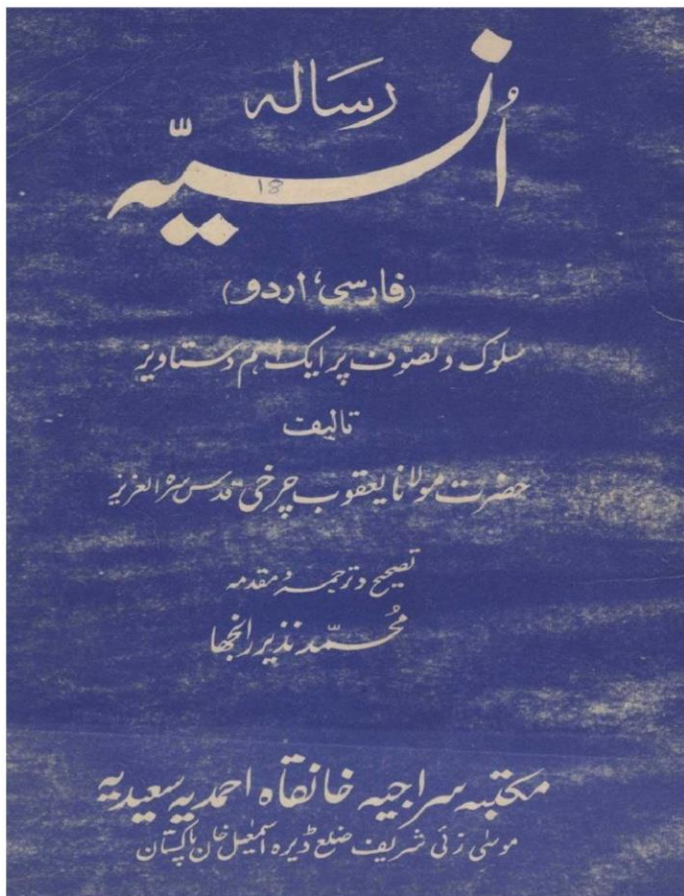 رسالہ
اُنسیّہ
18
(فارسی، اردو)
سلوک و تصوّف پر ایک اہم دستاویز
تالیف
حضرت مولانا یعقوب چرخی قدس سرہ العزیز
تصحیح و ترجمہ و مقدمہ
محمّد نذیر رانجھا
مکتبہ سراجیہ خانقاہ احمدیہ سعیدیہ
موسٰی زئی شریف ضلع ڈیرہ اسمٰعیل خان پاکستان